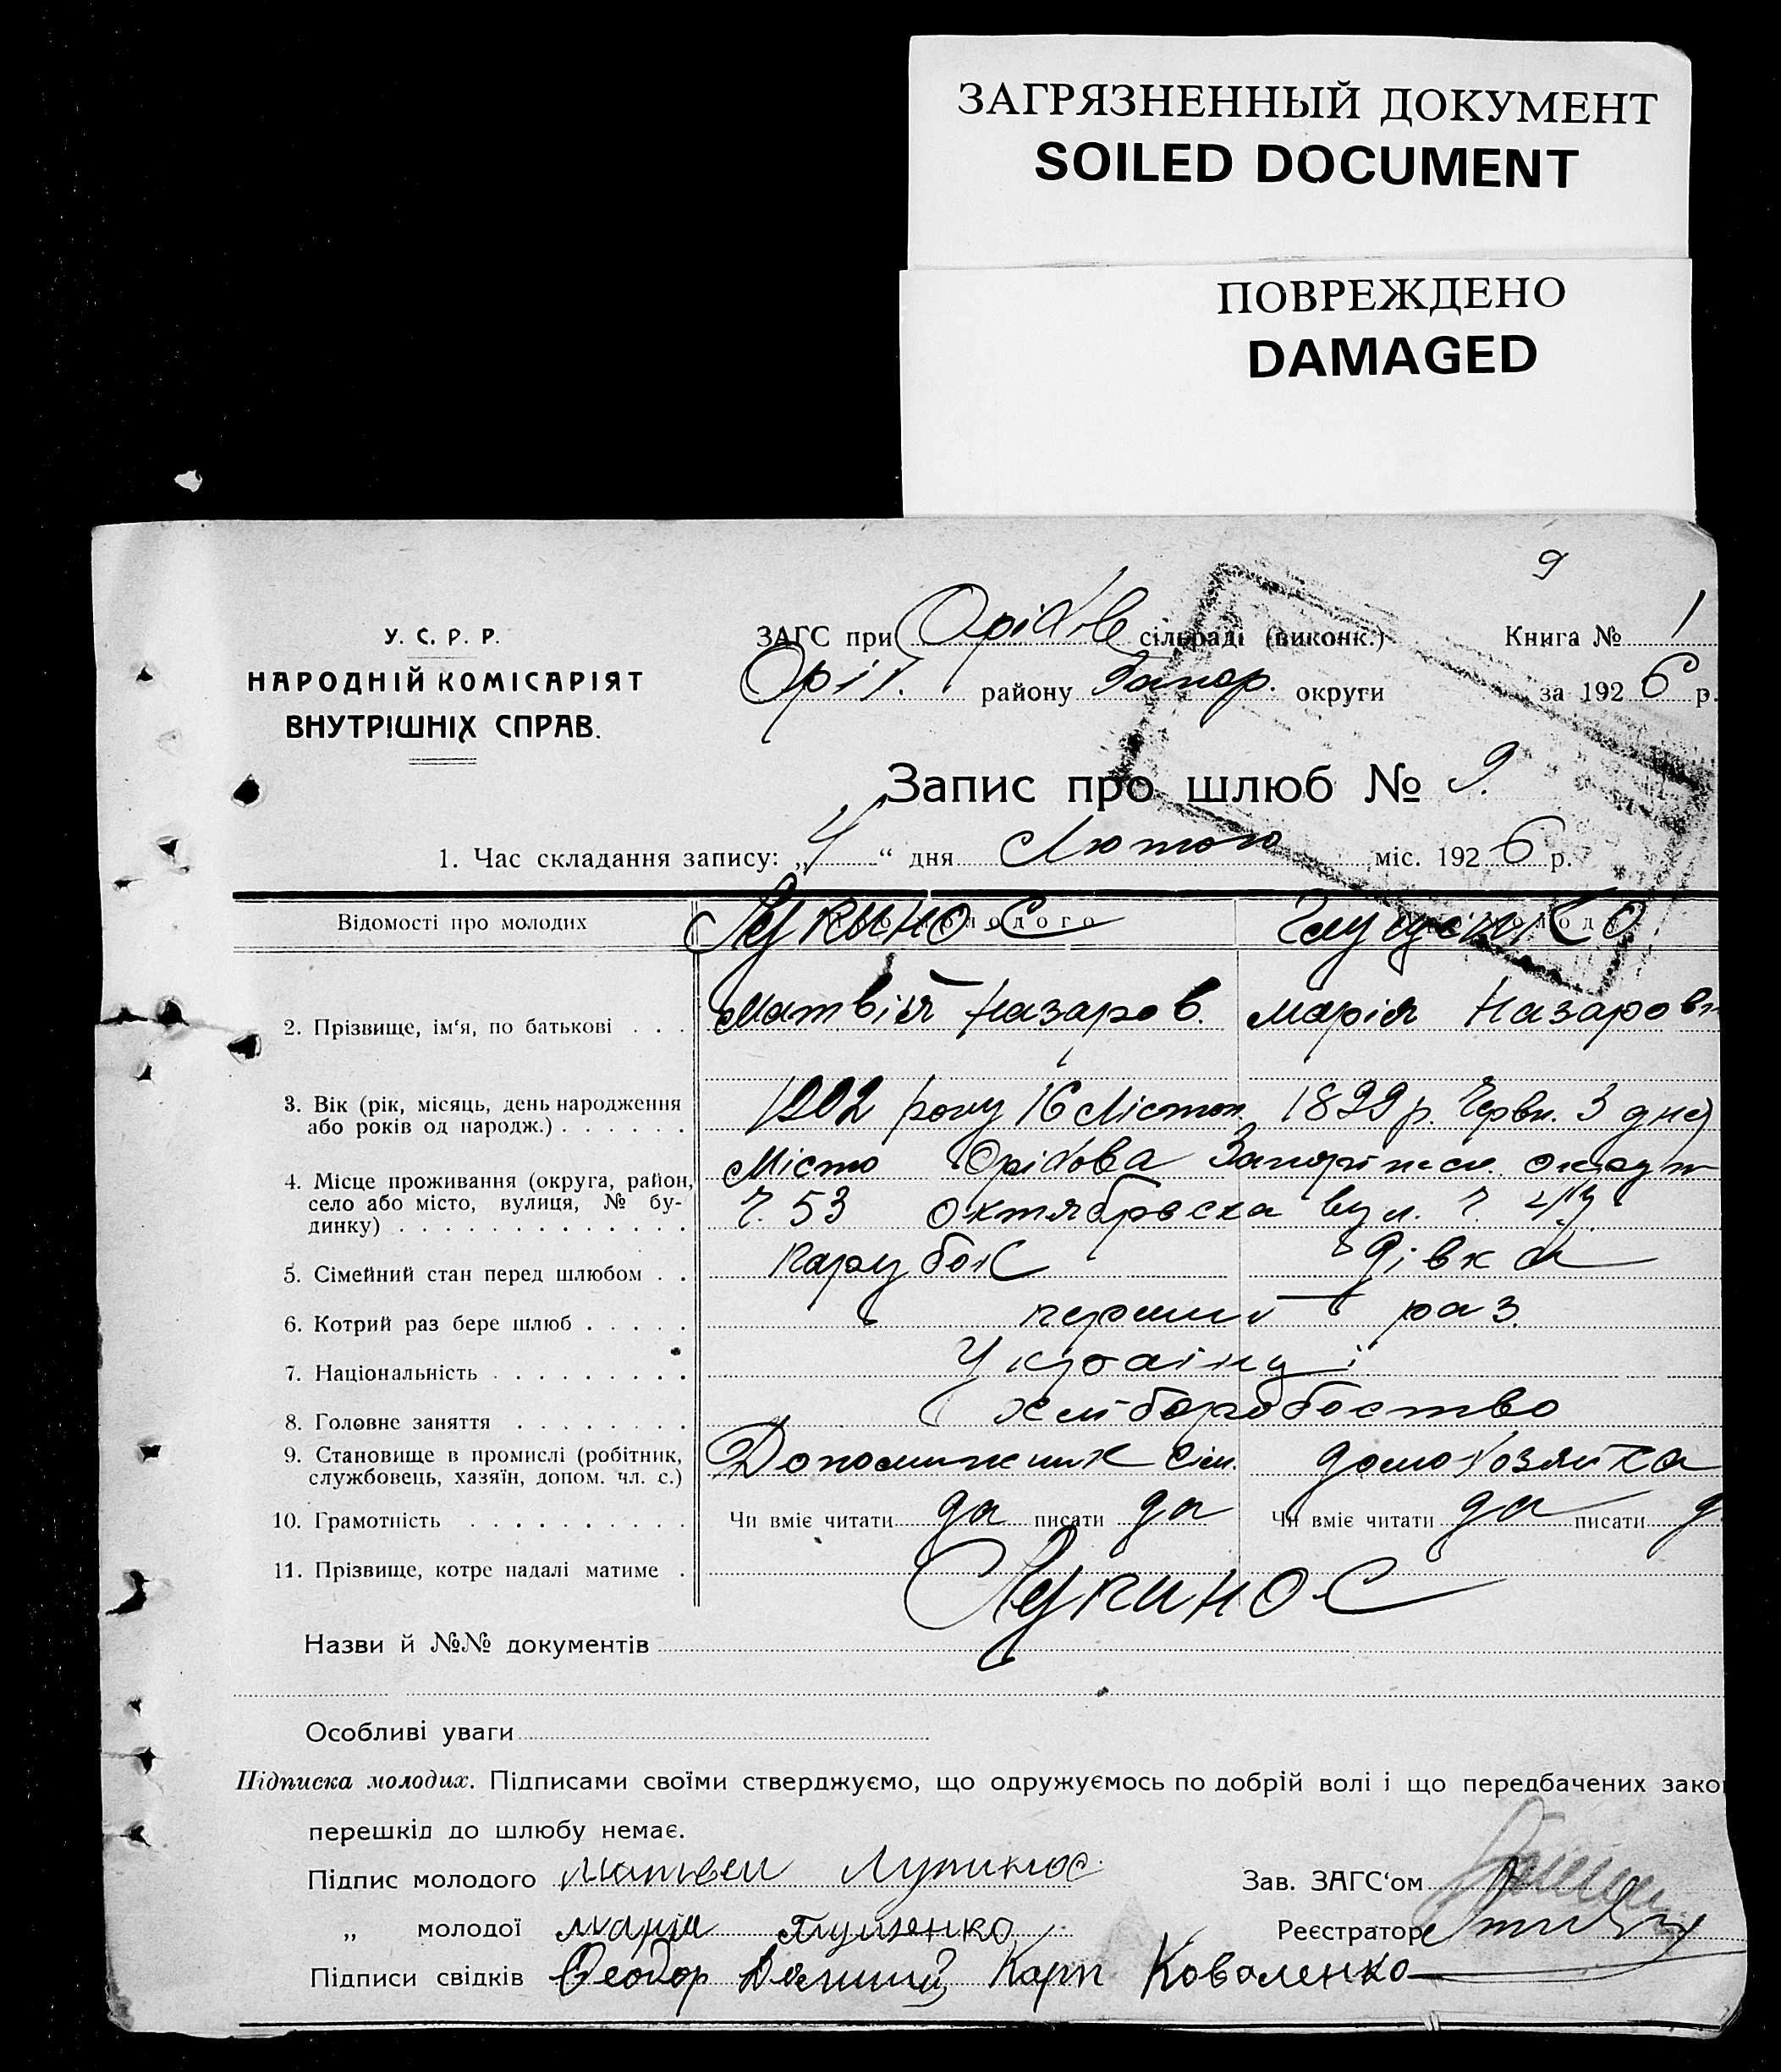 ЗАГРЯЗНЕННЫЙ ДОКУМЕНТ
SOILED DOCUMENT
ПОВРЕЖДЕНО
DAMAGED
9
У. С. Р. Р.
НАРОДНІЙ КОМІСАРІЯТ
ВНУТРІШНІХ СПРАВ.
ЗАГС при Оріхів сільраді (виконк.) Книга № 1
Оріх. району Запор. округи за 1926 р.
Запис про шлюб № 9.
1. Час складання запису: „4“ дня Лютого міс. 1926 р.
Відомості про молодих
Лукинос
2. Прізвище, ім‘я, по батькові . . . Матвій Назаров. Марія Назаровн
3. Вік (рік, місяць, день народження
або років од народж.) . . . . . . 1902 року 16 Листоп. 1899 р. Червн. 3 дня
4. Місце проживання (округа, район,
село або місто, вулиця, № бу-
динку) . . . . . . . . . . . . .
Місто Оріхова
53 Октябрьска вул.
5. Сімейний стан перед шлюбом . . Парубок Дівка
6. Котрий раз бере шлюб . . . . . перший раз.
7. Національність . . . . . . . . . Українці
8. Головне заняття . . . . . . . . хліборобство
9. Становище в промислі (робітник,
службовець, хазяїн, допом. чл. с.) Допомижник сім. домохозяйка
10. Грамотність . . . . . . . . . . Чи вміє читати да писати да Чи вміє читати да писати д
11. Прізвище, котре надалі матиме . Лукинос
Назви й №№ документів
Особливі уваги
Підписка молодих. Підписами своїми стверджуємо, що одружуємось по добрій волі і що передбачених зако
перешкід до шлюбу немає.
Підпис молодого Матвей Зав. ЗАГС‘ом
„ молодої Мария Реєстратор
Підписи свідків Феодор Карп Коваленко